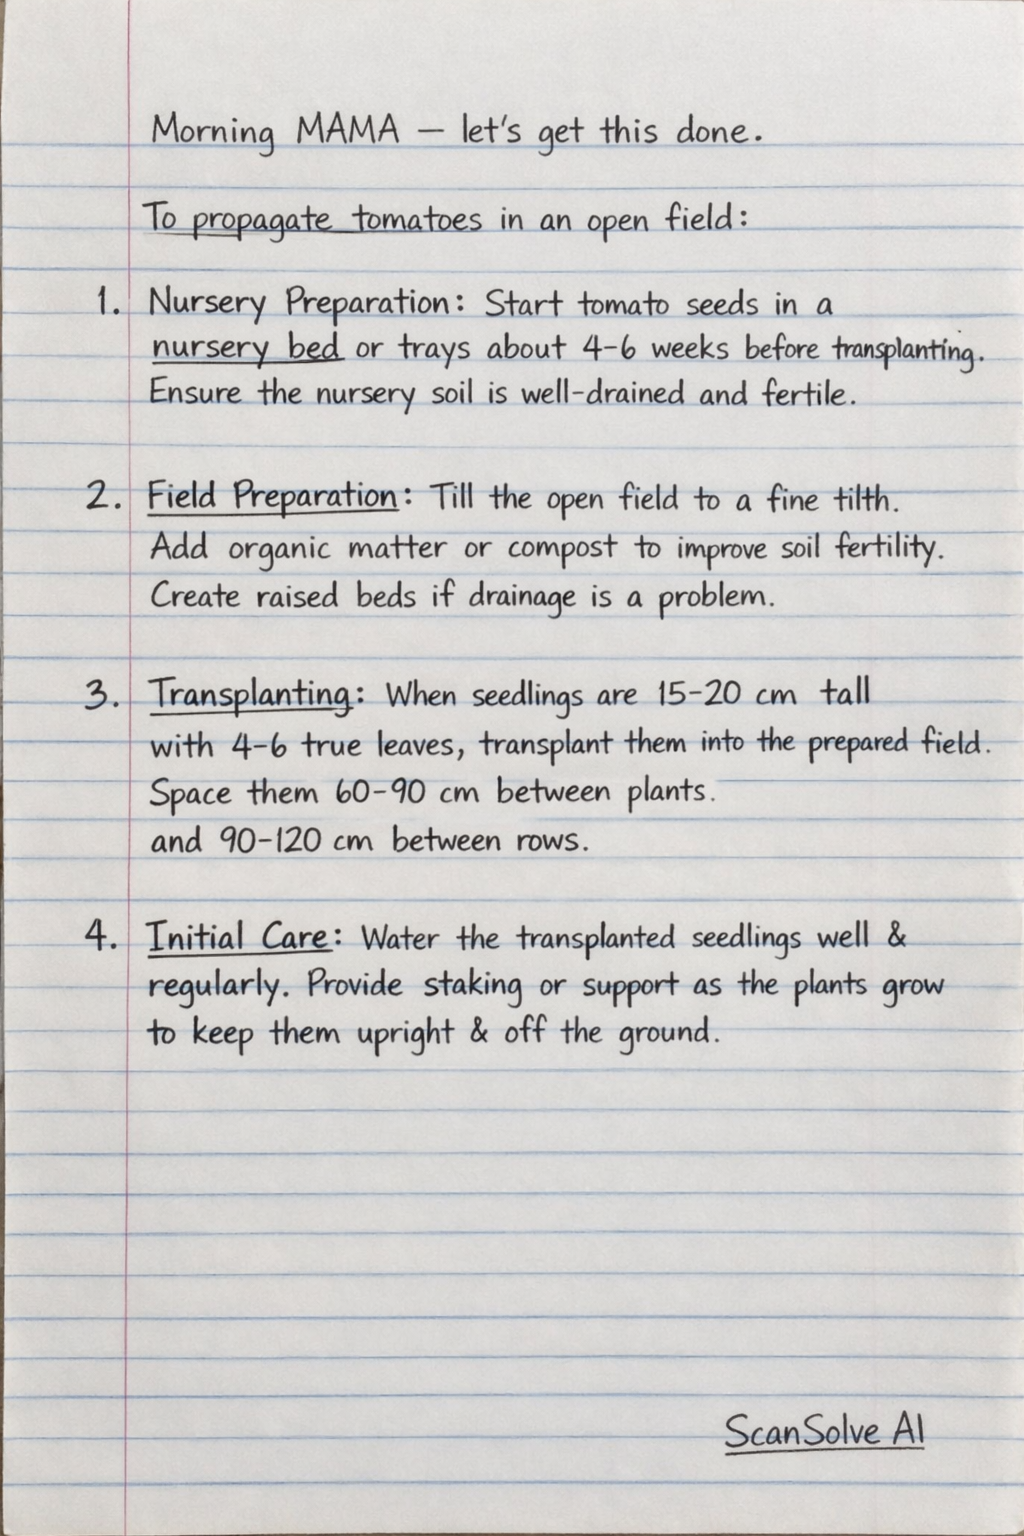 Morning MAMA — let's get this done.
To propagate tomatoes in an open field:
1. Nursery Preparation: Start tomato seeds in a
nursery bed or trays about 4-6 weeks before transplanting.
Ensure the nursery soil is well-drained and fertile.
2. Field Preparation: Till the open field to a fine tilth.
Add organic matter or compost to improve soil fertility.
Create raised beds if drainage is a problem.
3. Transplanting: When seedlings are 15-20 cm tall
with 4-6 true leaves, transplant them into the prepared field.
Space them 60-90 cm between plants.
and 90-120 cm between rows.
4. Initial Care: Water the transplanted seedlings well &
regularly. Provide staking or support as the plants grow
to keep them upright & off the ground.
ScanSolve AI